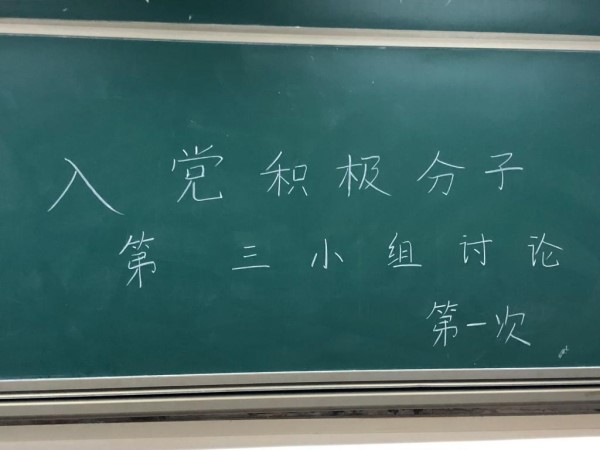 入党积极分子
第三小组讨论
第一次